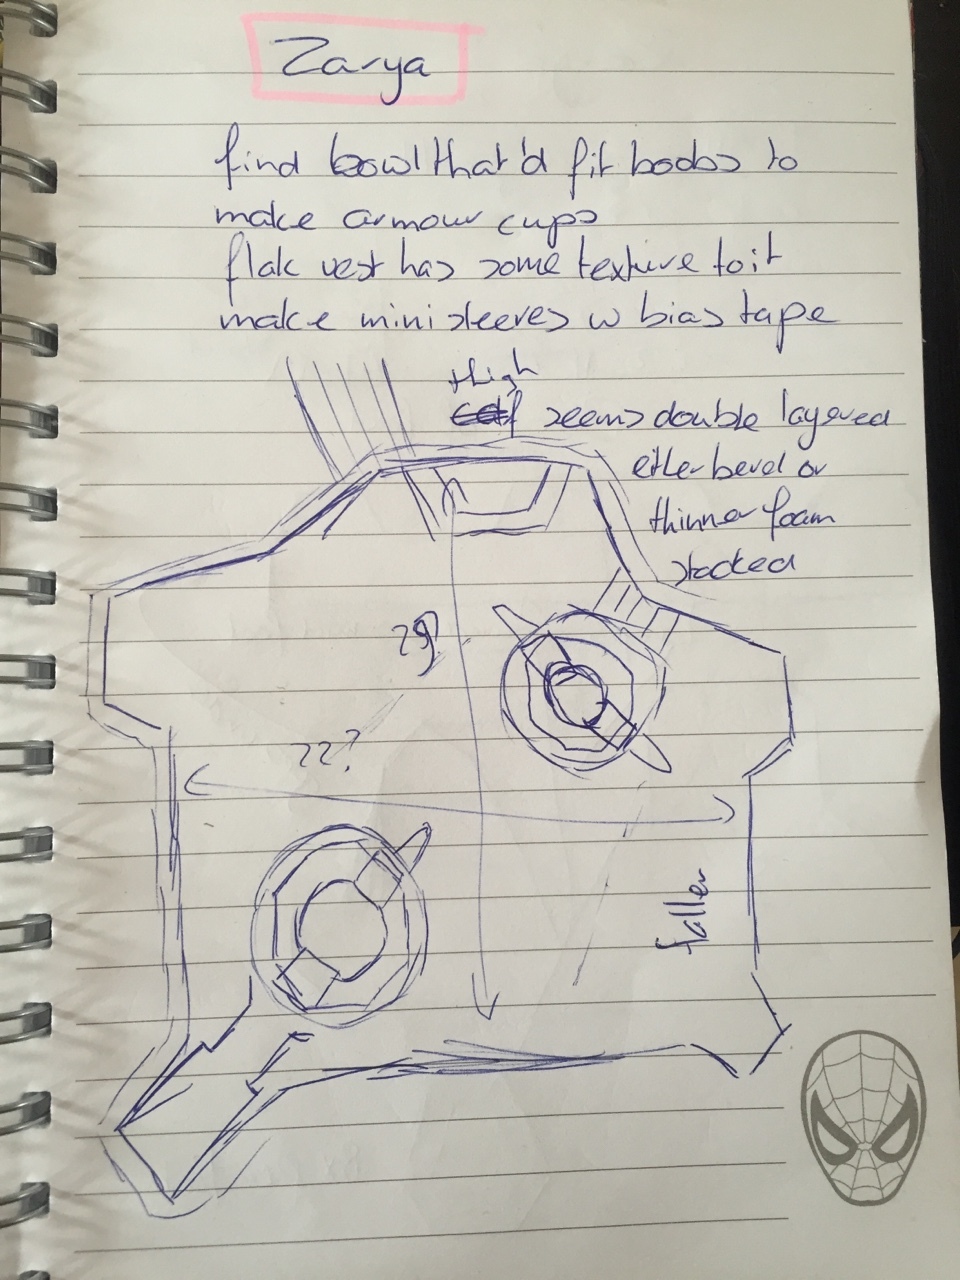 Zarya
find bowl that'd fit boobs to
make armour cups
flak vest has some texture to it
make mini sleeves w bias tape
thigh
seems double layered
either bevel or
thinner foam
stacked
22?
fallen